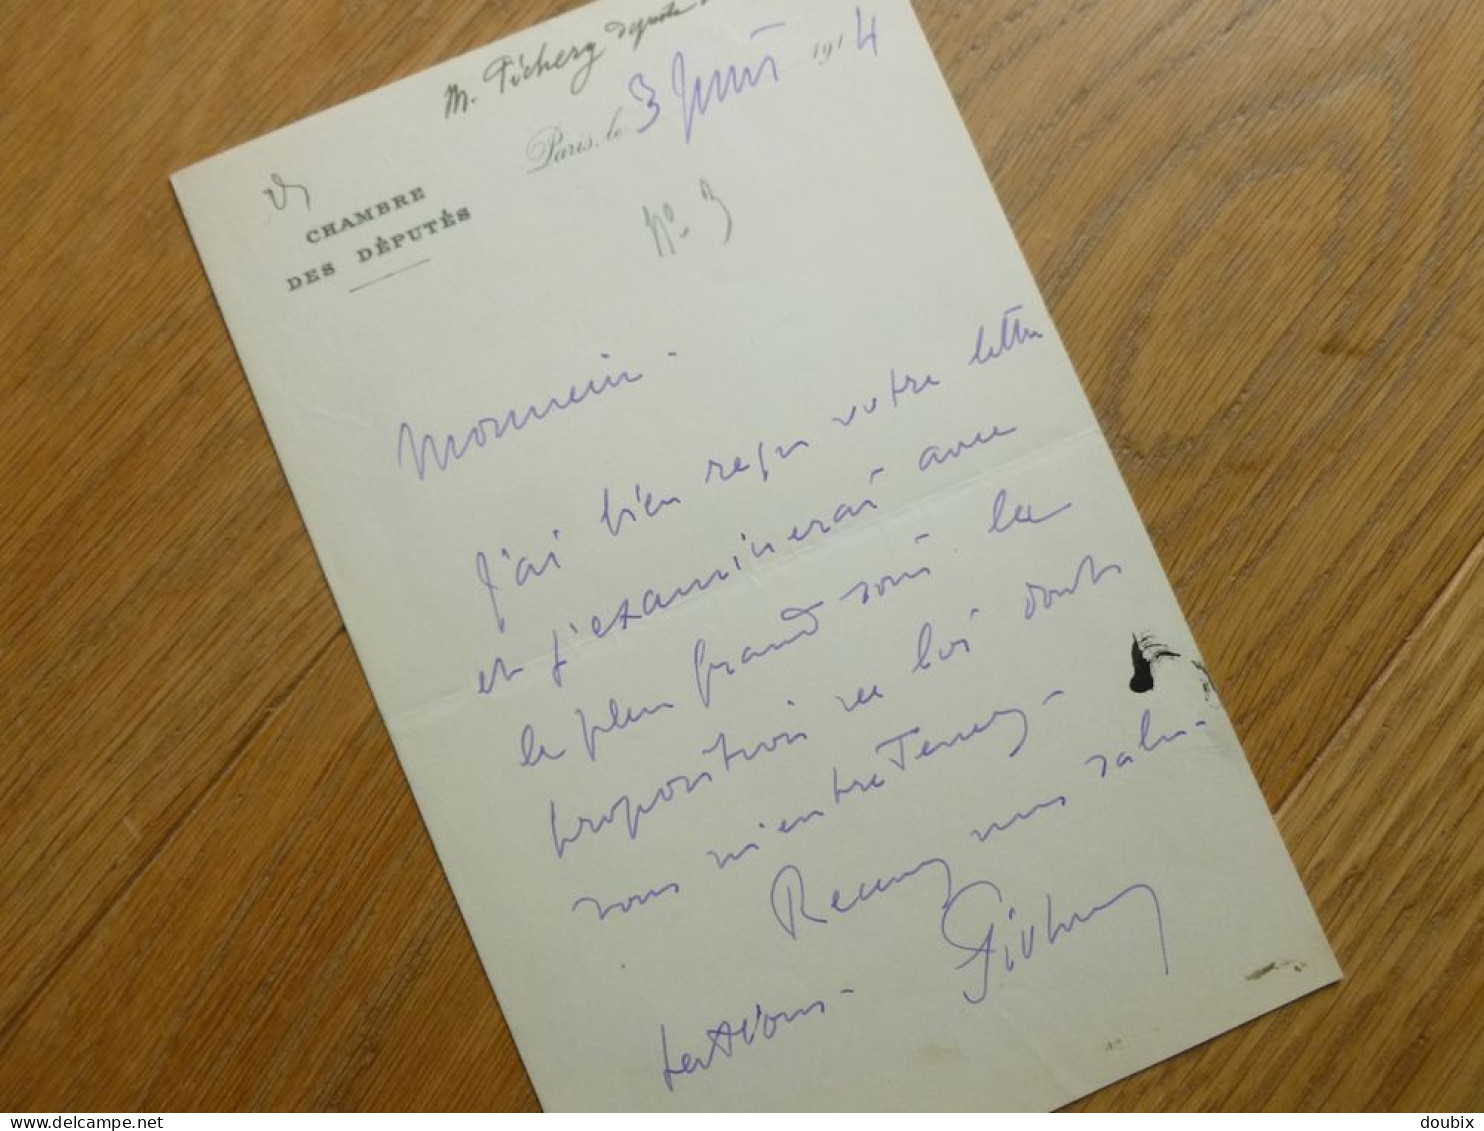 M. Pichery député
Paris, le 3 Juin 1914
CHAMBRE
DES DÉPUTÉS
N° 3
Monsieur -
J'ai bien reçu votre lettre
et j'examinerai avec
le plus grand soin la
proposition de loi dont
vous m'entretenez -
Recevez mes salu-
tations - Pichery
delcampe.net
doubix